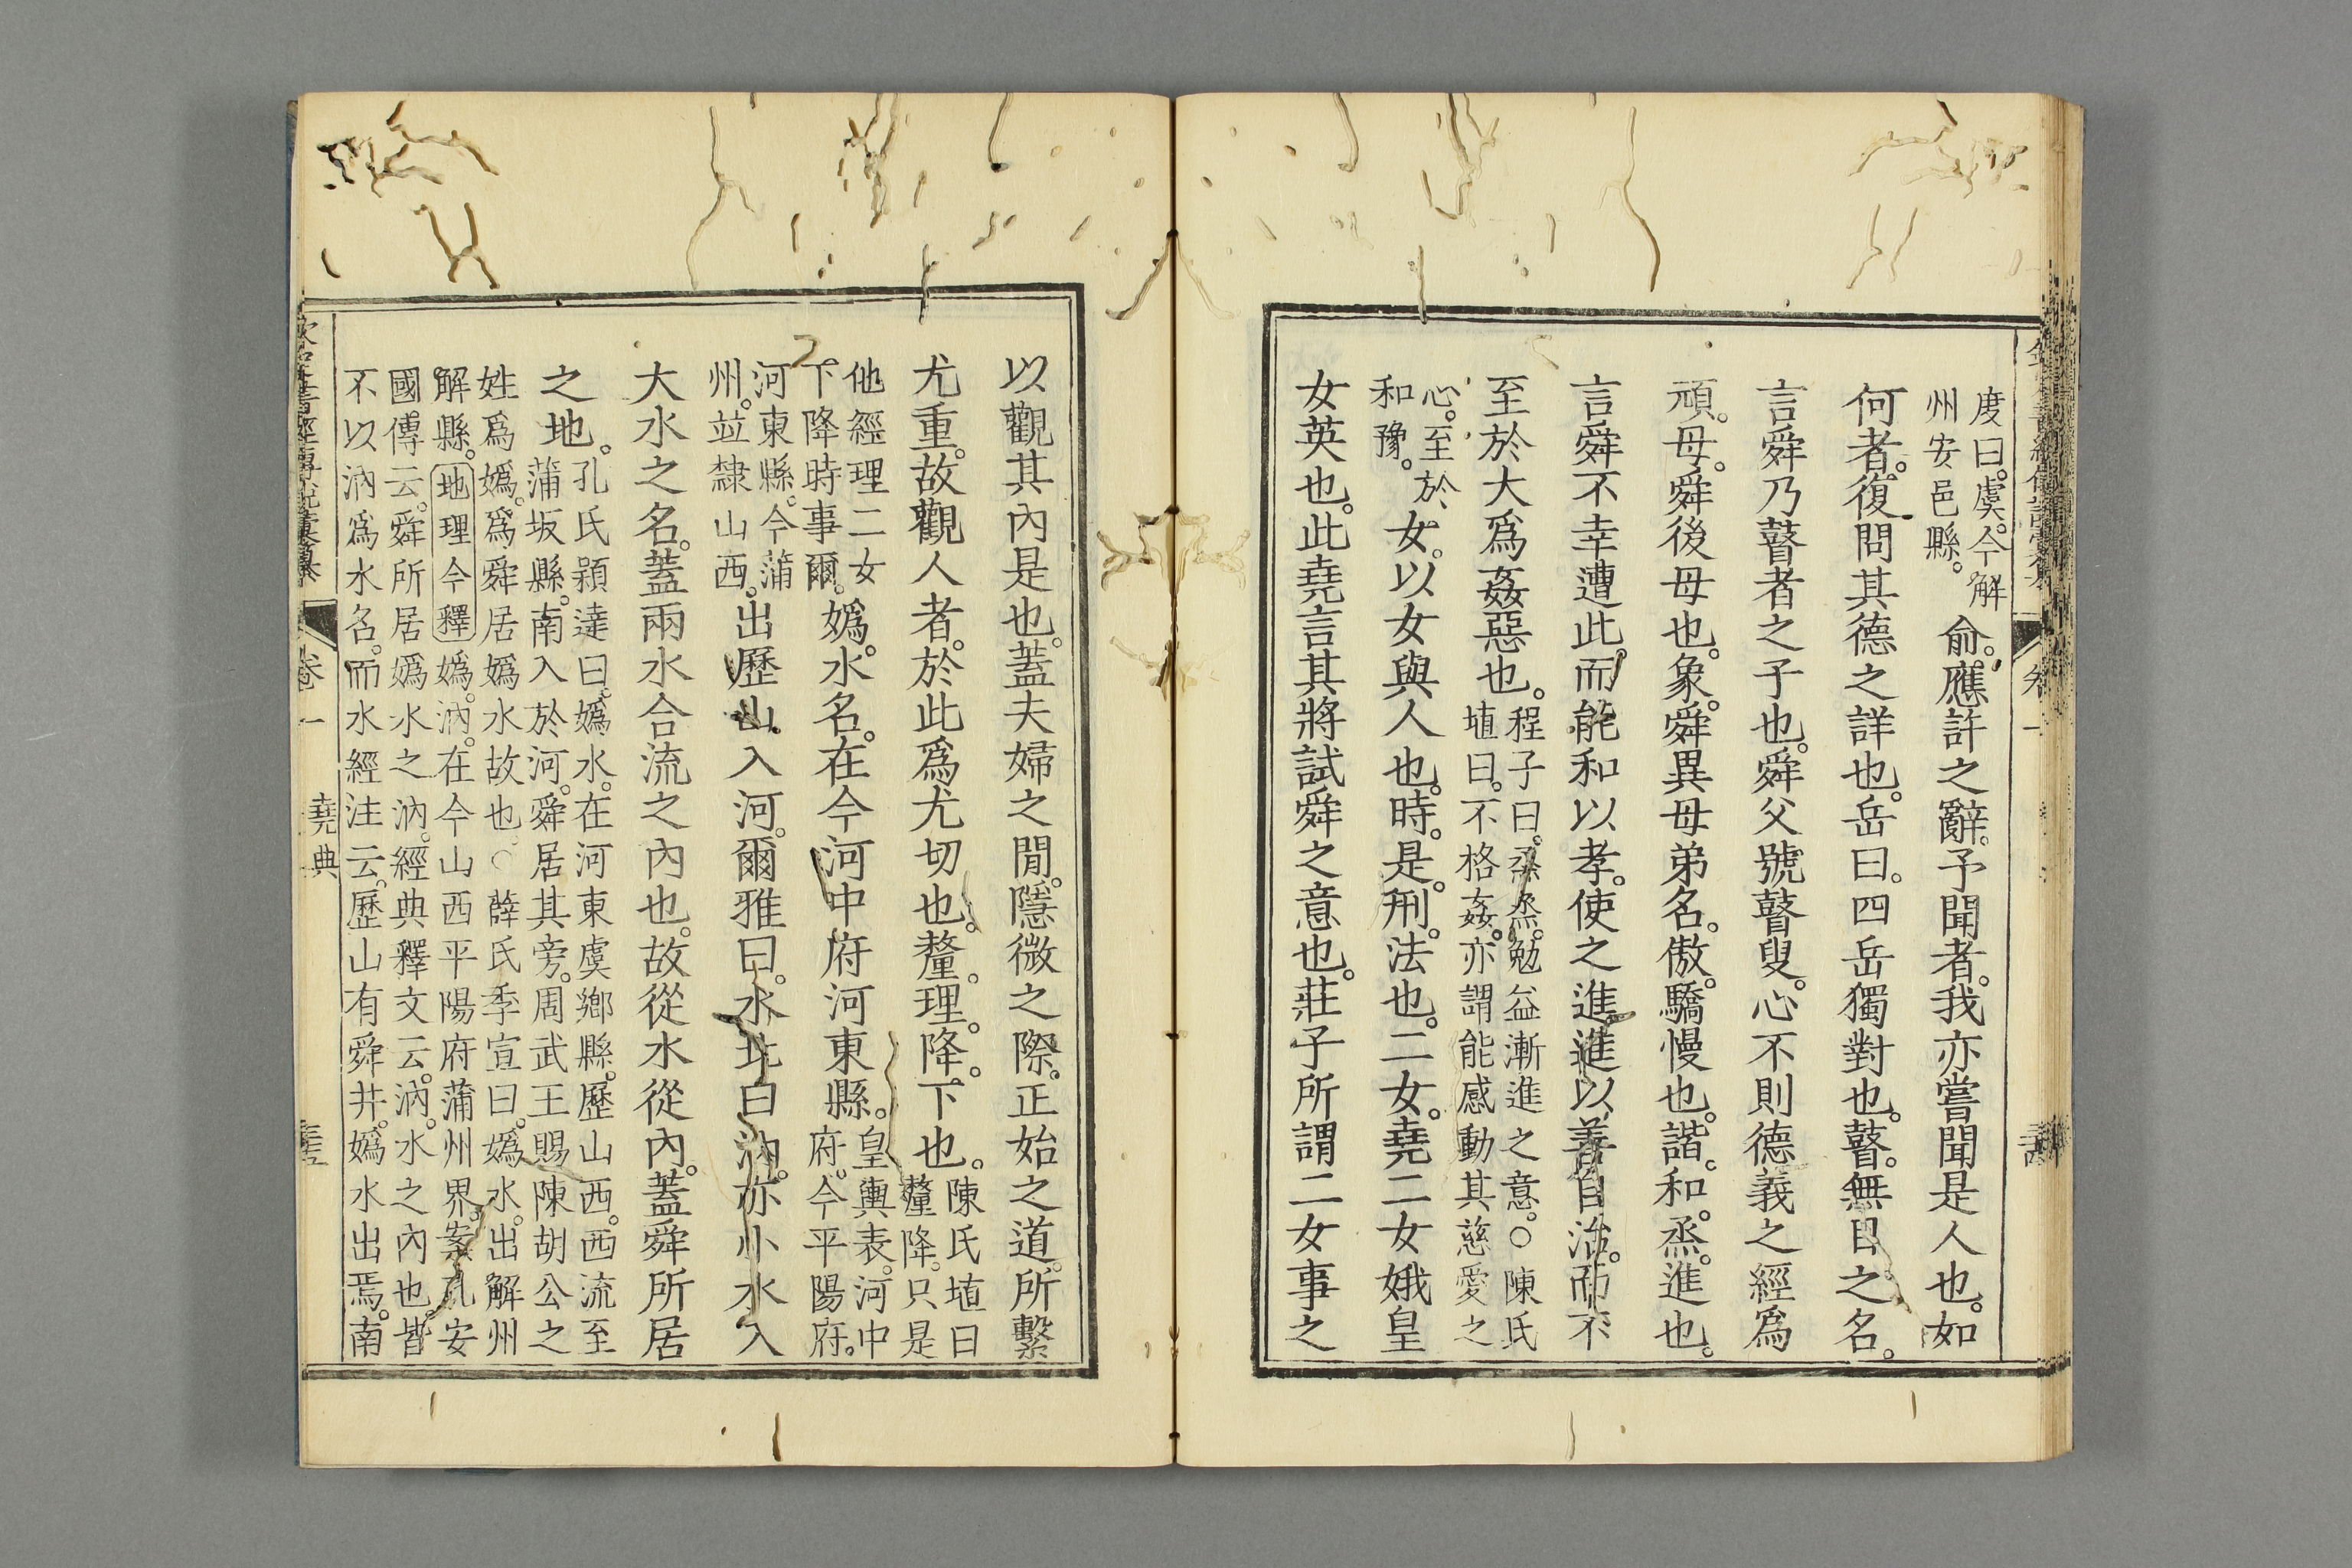 度曰。虞。今解州安邑縣。俞。應許之辭。予聞者。我亦嘗聞是人也。如
何者。復問其德之詳也。岳曰。四岳獨對也。瞽。無目之名。
言舜乃瞽者之子也。舜父號瞽叟。心不則德義之經爲
頑。母。舜後母也。象。舜異母弟名。傲。驕慢也。諧。和。烝。進也。
言舜不幸遭此。而能和以孝。使之進進以善自治。而不
至於大爲姦惡也。程子曰。烝烝。勉益漸進之意。○陳氏埴曰。不格姦。亦謂能感動其慈愛之
心。至於和豫。女。以女與人也。時。是。刑。法也。二女。堯二女娥皇
女英也。此堯言其將試舜之意也。莊子所謂二女事之
以觀其內是也。蓋夫婦之閒。隱微之際。正始之道。所繫
尤重。故觀人者。於此爲尤切也。釐。理。降。下也。陳氏埴曰釐降。只是
他經理二女下降時事爾。嬀。水名。在今河中府河東縣。皇輿表。河中府。今平陽府。
河東縣。今蒲州。竝隸山西。出歷山。入河。爾雅曰。水北曰汭。亦小水入
大水之名。蓋兩水合流之內也。故從水從內。蓋舜所居
之地。孔氏穎達曰。嬀水。在河東虞鄉縣。歷山西。西流至蒲坂縣。南入於河。舜居其旁。周武王賜陳胡公之
姓爲嬀。爲舜居嬀水故也。○薛氏季宣曰。嬀水。出解州
解縣。地理今釋嬀。汭。在今山西平陽府蒲州界。案孔安
國傳云。舜所居嬀水之汭。經典釋文云。汭。水之內也。皆
不以汭爲水名。而水經注云。歷山有舜井。嬀水出焉。南
卷一
堯典